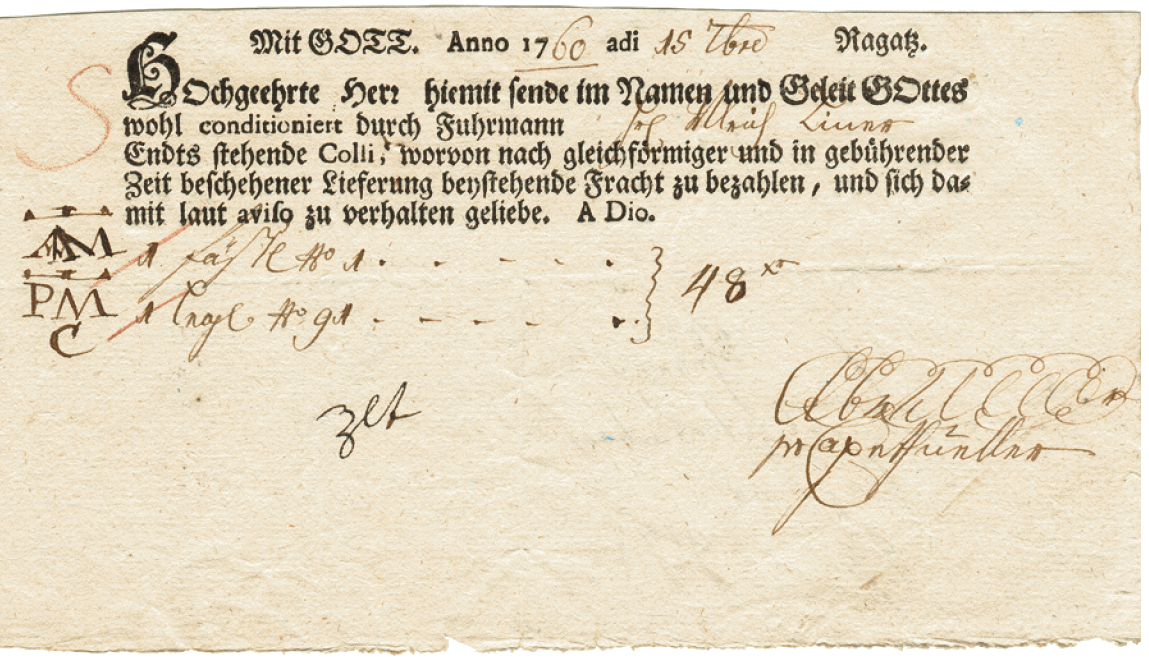 Mit GOTT. Anno 1760 adi 15 7bre Ragatz.
HOchgeehrte Herr hiemit sende im Namen und Geleit GOttes
wohl conditioniert durch Fuhrmann Ulrich Liner
Endts stehende Colli, worvon nach gleichförmiger und in gebührender
Zeit beschehener Lieferung beystehende Fracht zu bezahlen, und sich da-
mit laut aviso zu verhalten geliebe. A Dio.
AM 1 fäßl No 1 . - . - . . 48 xr
PM 1 No 91 . - - . - .
C